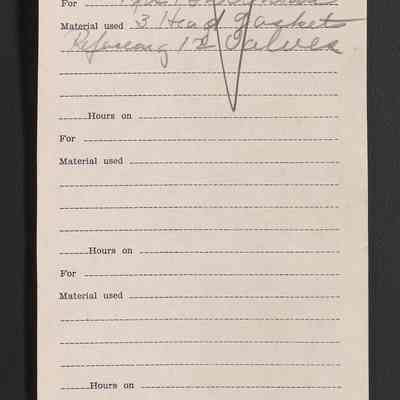 For
Material used 3 Head Gaskets
Refaceing 12 Valves
Hours on
For
Material used
Hours on
For
Material used
Hours on